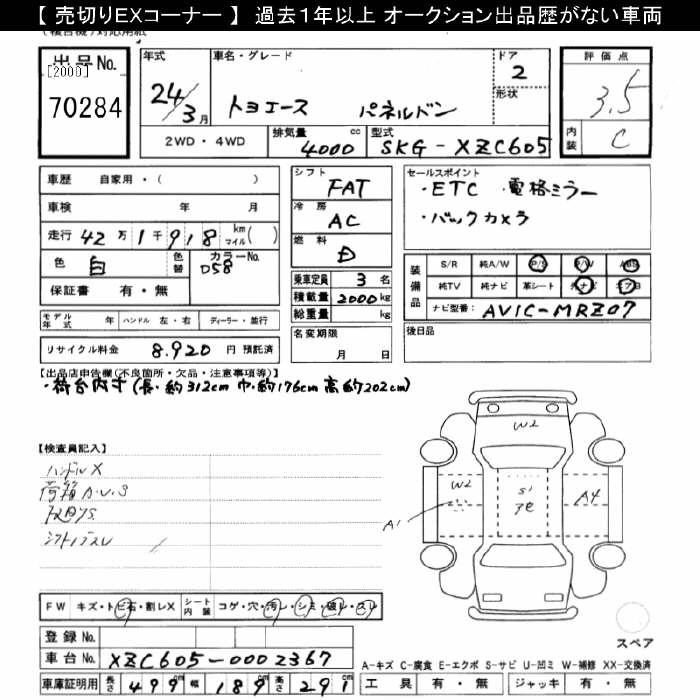 【 売切りEXコーナー 】 過去1年以上 オークション出品歴がない車両
出品No.
[2000]
70284
年式
24/3月
車名・グレード
トヨエース パネルバン
ドア
2
形状
評価点
3.5
内装
C
2WD・4WD
排気量
4000cc
型式
SKG-XZC605
車歴 自家用・( )
車検 年 月
走行 42万1千918 km マイル( )
色 白
色替
カラーNo.
058
保証書 有・無
モデル年式 年 ハンドル 左・右 ディーラー・並行
リサイクル料金 8,920 円 預託済
シフト
FAT
冷房
AC
燃料
D
乗車定員 3 名
積載量 2000 kg
総重量 kg
名変期限
月 日
セールスポイント
・ETC ・電格ミラー
・バックカメラ
装備品
S/R 純A/W P/S P/W ABS
純TV 純ナビ 革シート 社ナビ エアB
ナビ型番: AVIC-MRZ07
後日品
【出品店申告欄(不良箇所・欠品・注意事項等)】
・荷台内寸(長・約312cm 巾・約176cm 高約202cm)
【検査員記入】
ハンドルX
荷箱A.U.S
シフトノブスレ
W2
W2
A1
S1
A4
スペア
FW キズ・トビ石・割レX シート内装 コゲ・穴・汚レ・シミ・破レ・スレ
登録No.
車台No. XZC605-0002367
車庫証明用 長さ 499cm 幅 189cm 高さ 291cm
A-キズ C-腐食 E-エクボ S-サビ U-凹ミ W-補修 XX-交換済
工具 有・無 ジャッキ 有・無